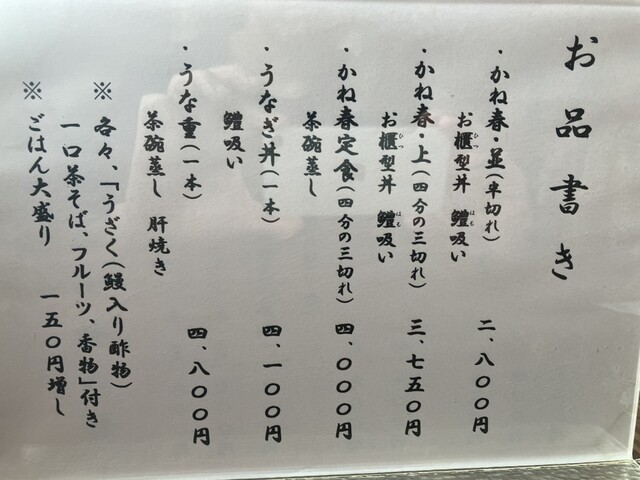 お品書き
・かね春・並(半切れ) 二、八〇〇円
お櫃型丼 鱧吸い
・かね春・上(四分の三切れ) 三、七五〇円
お櫃型丼 鱧吸い
・かね春定食(四分の三切れ) 四、〇〇〇円
茶碗蒸し
・うなぎ丼(一本) 四、一〇〇円
鱧吸い
・うな重(一本) 四、八〇〇円
茶碗蒸し 肝焼き
※各々、「うざく(鰻入り酢物)
一口茶そば、フルーツ、香物」付き
※ごはん大盛り 一五〇円増し